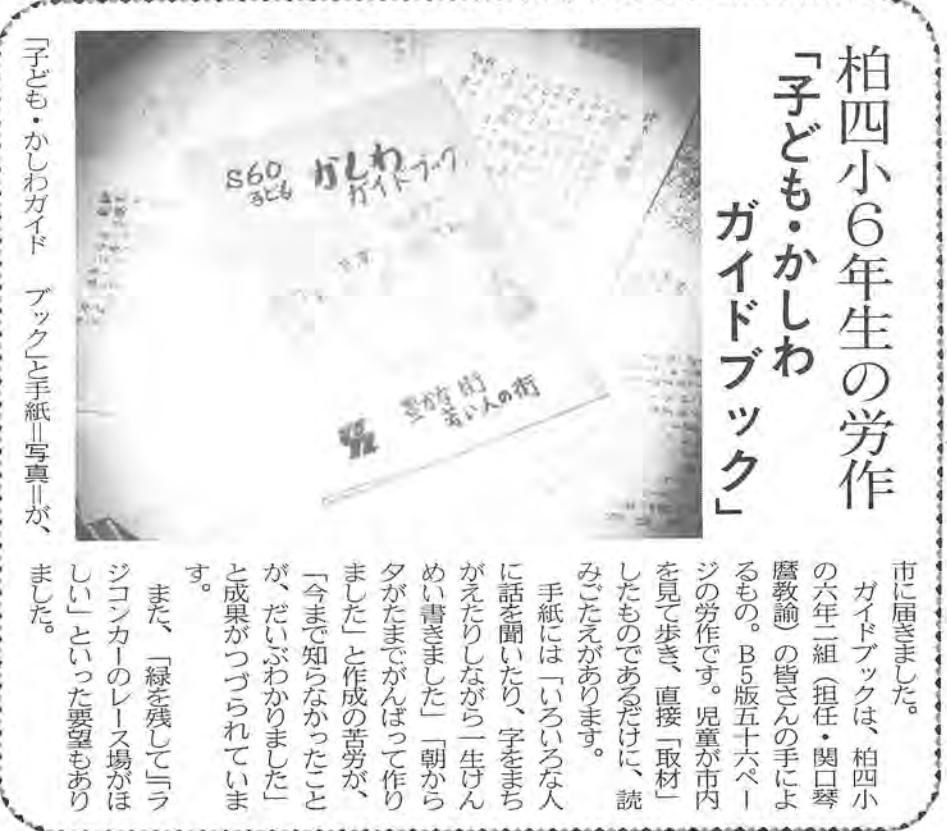 柏四小6年生の労作
「子ども・かしわ
ガイドブック」
S60
子ども
かしわ
ガイドブック
豊かな街
若い人の街
「子ども・かしわガイド
ブック」と手紙＝写真＝が、
市に届きました。
ガイドブックは、柏四小
の六年二組（担任・関口琴
麿教諭）の皆さんの手によ
るもの。B5版五十六ペー
ジの労作です。児童が市内
を見て歩き、直接「取材」
したものであるだけに、読
みごたえがあります。
手紙には「いろいろな人
に話を聞いたり、字をまち
がえたりしながら一生けん
めい書きました」「朝から
夕がたまでがんばって作り
ました」と作成の苦労が、
「今まで知らなかったこと
が、だいぶわかりました」
と成果がつづられていま
す。
また、「緑を残して」「ラ
ジコンカーのレース場がほ
しい」といった要望もあり
ました。